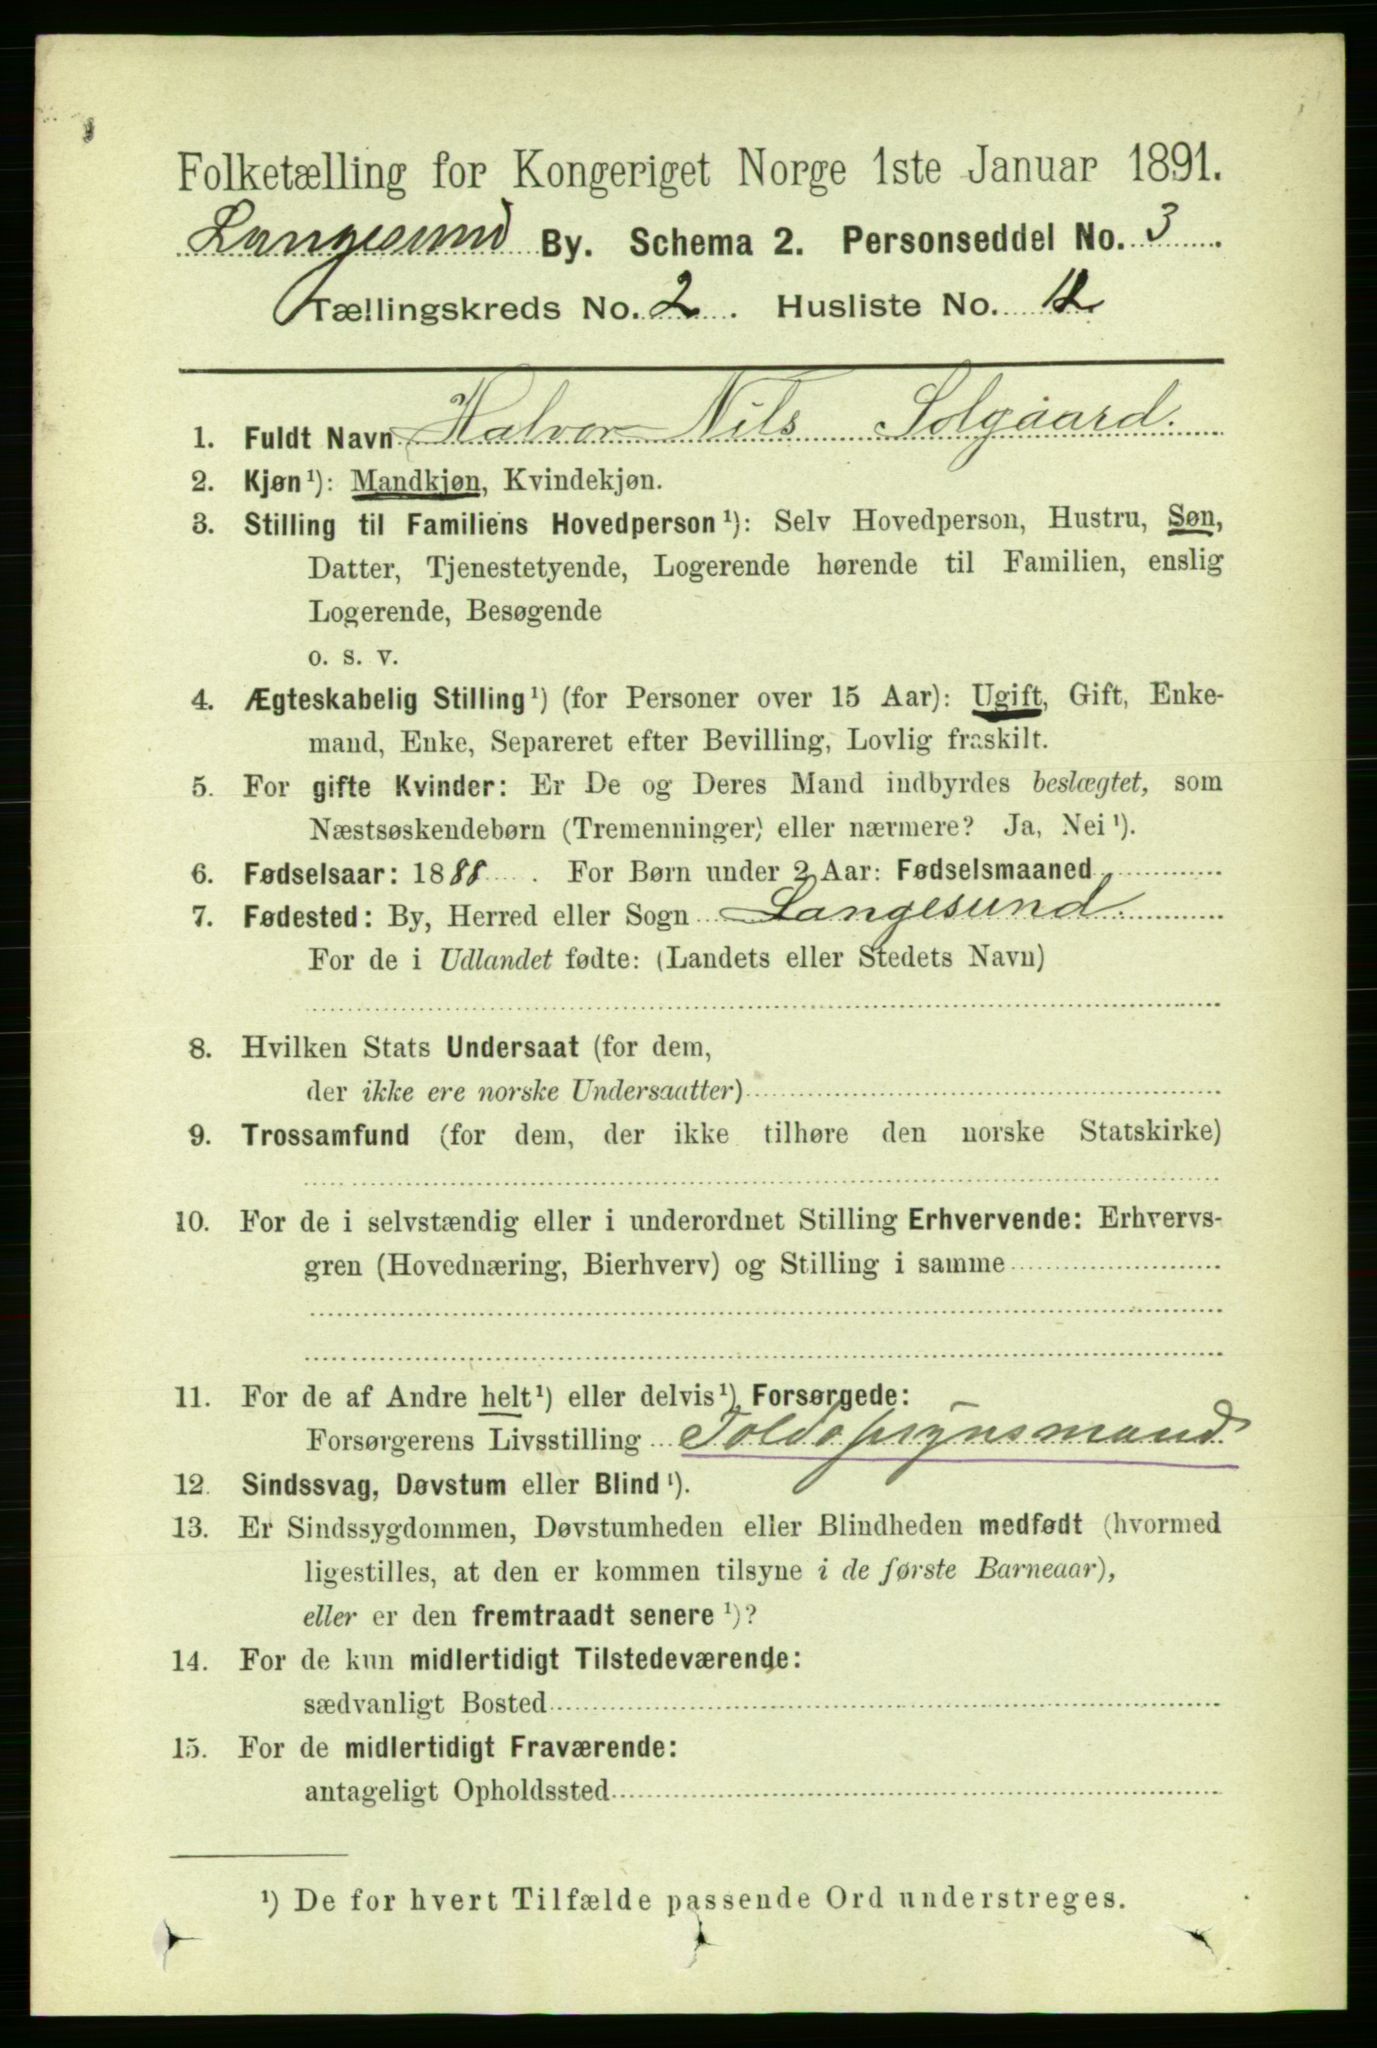 Folketælling for Kongeriget Norge 1ste Januar 1891.
Langesund By. Schema 2. Personseddel No. 3
Tællingskreds No. 2. Husliste No. 12
1. Fuldt Navn Halvor Nils Solgaard.
2. Kjøn¹): Mandkjøn, Kvindekjøn.
3. Stilling til Familiens Hovedperson¹): Selv Hovedperson, Hustru, Søn,
Datter, Tjenestetyende, Logerende hørende til Familien, enslig
Logerende, Besøgende
o. s. v.
4. Ægteskabelig Stilling¹) (for Personer over 15 Aar): Ugift, Gift, Enke-
mand, Enke, Separeret efter Bevilling, Lovlig fraskilt.
5. For gifte Kvinder: Er De og Deres Mand indbyrdes beslægtet, som
Næstsøskendebørn (Tremenninger) eller nærmere? Ja, Nei¹).
6. Fødselsaar: 1888. For Børn under 2 Aar: Fødselsmaaned
7. Fødested: By, Herred eller Sogn Langesund.
For de i Udlandet fødte: (Landets eller Stedets Navn)
8. Hvilken Stats Undersaat (for dem,
der ikke ere norske Undersaatter)
9. Trossamfund (for dem, der ikke tilhøre den norske Statskirke)
10. For de i selvstændig eller i underordnet Stilling Erhvervende: Erhvervs-
gren (Hovednæring, Bierhverv) og Stilling i samme
11. For de af Andre helt¹) eller delvis¹) Forsørgede:
Forsørgerens Livsstilling Toldopsynsmand
12. Sindssvag, Døvstum eller Blind¹).
13. Er Sindssygdommen, Døvstumheden eller Blindheden medfødt (hvormed
ligestilles, at den er kommen tilsyne i de første Barneaar),
eller er den fremtraadt senere¹)?
14. For de kun midlertidigt Tilstedeværende:
sædvanligt Bosted
15. For de midlertidigt Fraværende:
antageligt Opholdssted
¹) De for hvert Tilfælde passende Ord understreges.